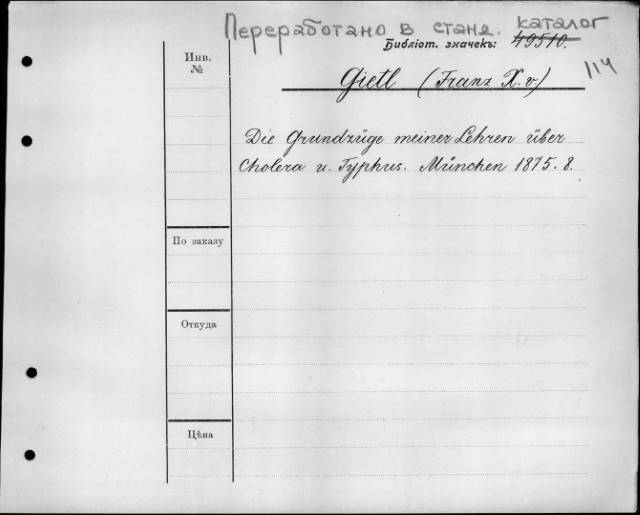 Переработано в станд. каталог
Библіот. значекъ: 49510.
114
Инв.
№
Gietl (Franz X. v)
Die Grundzüge meiner Lehren über
Cholera u. Typhus. München 1875. 8.
По заказу
Откуда
Цѣна